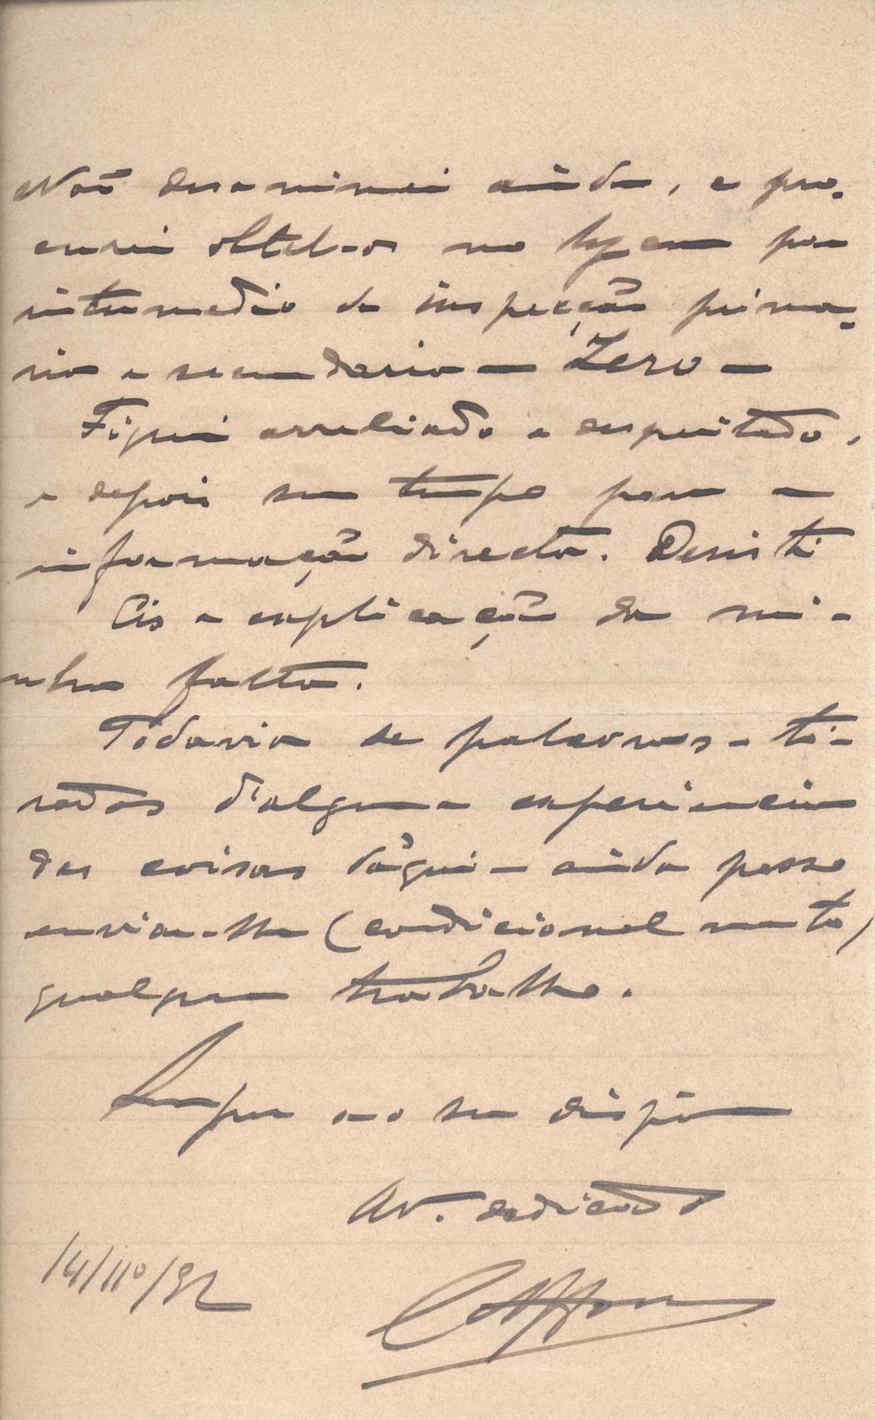 Não desanimei ainda, e pro-
curei obtel-os no logar por
intermedio da inspecção prima-
ria e secundaria — Zero —
Fiquei arreliado e despeitado,
e depois sem tempo para a
informação directa. Desisti
Eis a explicação da mi-
nha falta.
Todavia se palavras - ti-
radas d'alguma experiencia
das coisas d'aqui - ainda posso
enviar-lhe (condicionalmente)
qualquer trabalho.
Sempre ao seu dispôr
dedicado
14/110/92